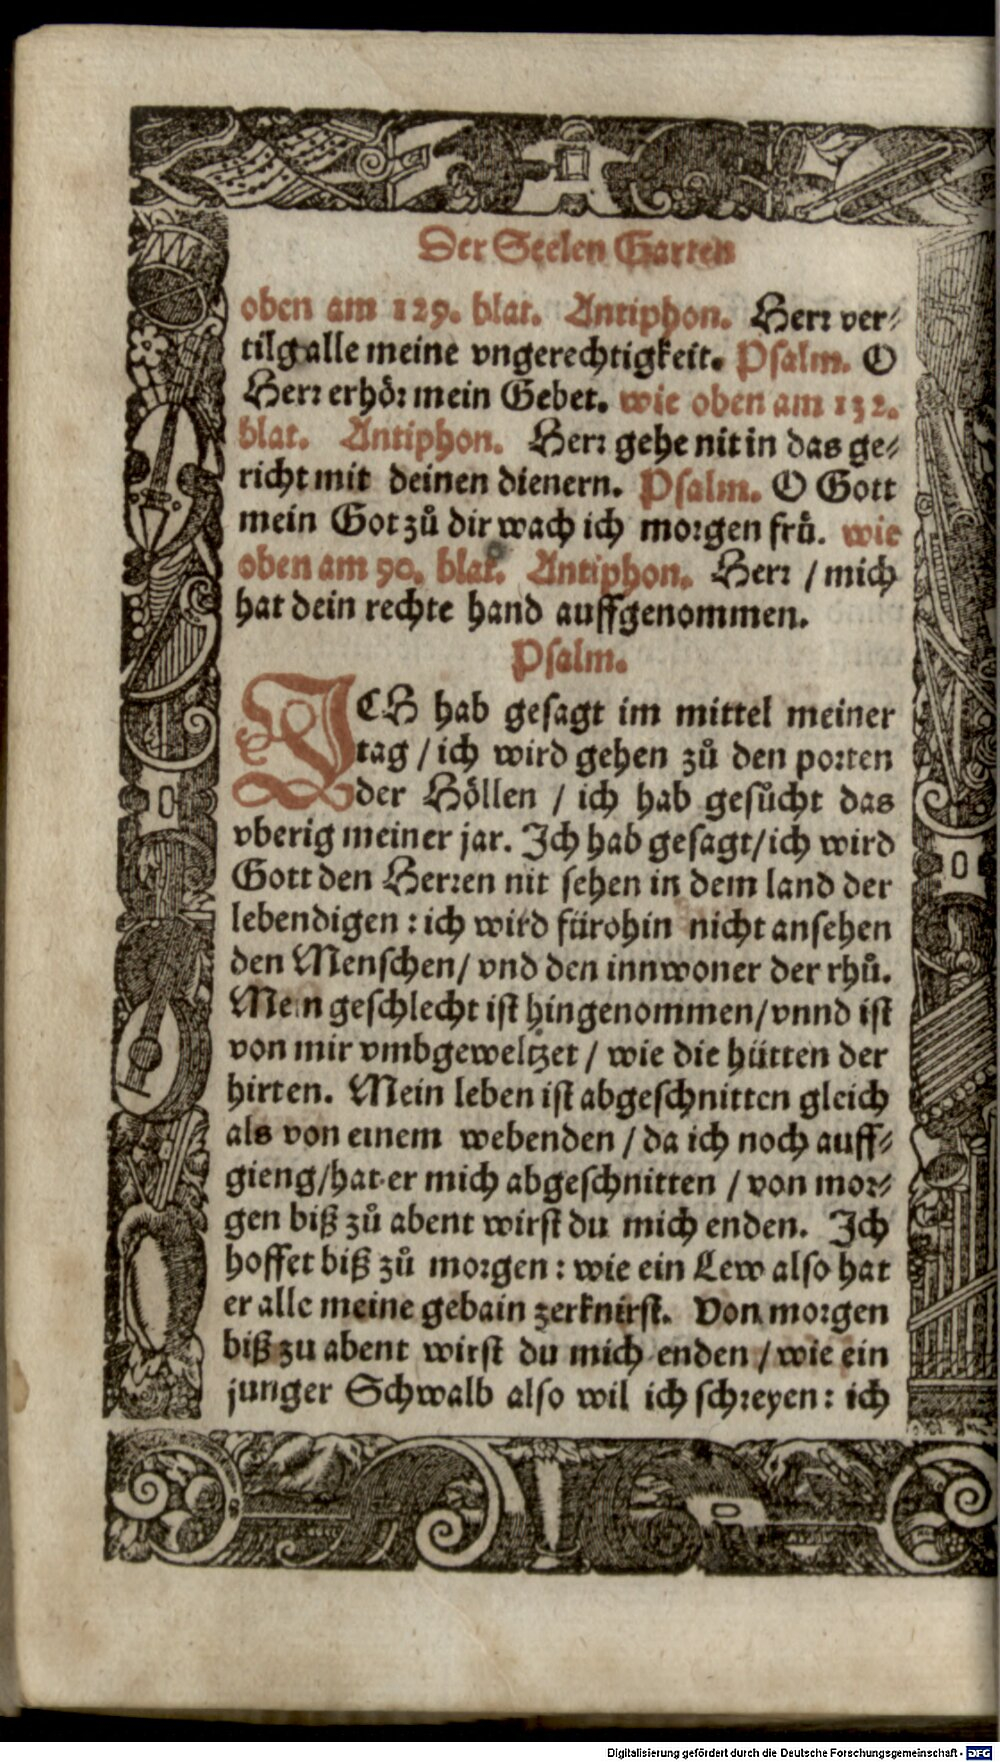 Der Seelen Garten
oben am 129. blat. Antiphon. Herr ver⸗
tilg alle meine vngerechtigkeit. Psalm. O
Herr erhör mein Gebet. wie oben am 132.
blat. Antiphon. Herr gehe nit in das ge⸗
richt mit deinen dienern. Psalm. O Gott
mein Got zů dir wach ich morgen frů. wie
oben am 90. blat. Antiphon. Herr / mich
hat dein rechte hand auffgenommen.
Psalm.
ICH hab gesagt im mittel meiner
tag / ich wird gehen zů den porten
der Höllen / ich hab gesůcht das
vberig meiner jar. Ich hab gesagt/ ich wird
Gott den Herren nit sehen in dem land der
lebendigen : ich wird fürohin nicht ansehen
den Menschen/ vnd den innwoner der rhů.
Mein geschlecht ist hingenommen/ vnnd ist
von mir vmbgeweltzet / wie die hütten der
hirten. Mein leben ist abgeschnitten gleich
als von einem webenden / da ich noch auff⸗
gieng/hat er mich abgeschnitten / von mor⸗
gen biß zů abent wirst du mich enden. Ich
hoffet biß zů morgen : wie ein Lew also hat
er alle meine gebain zerknirst. Von morgen
biß zu abent wirst du mich enden / wie ein
junger Schwalb also wil ich schreyen : ich
Digitalisierung gefördert durch die Deutsche Forschungsgemeinschaft - DFG